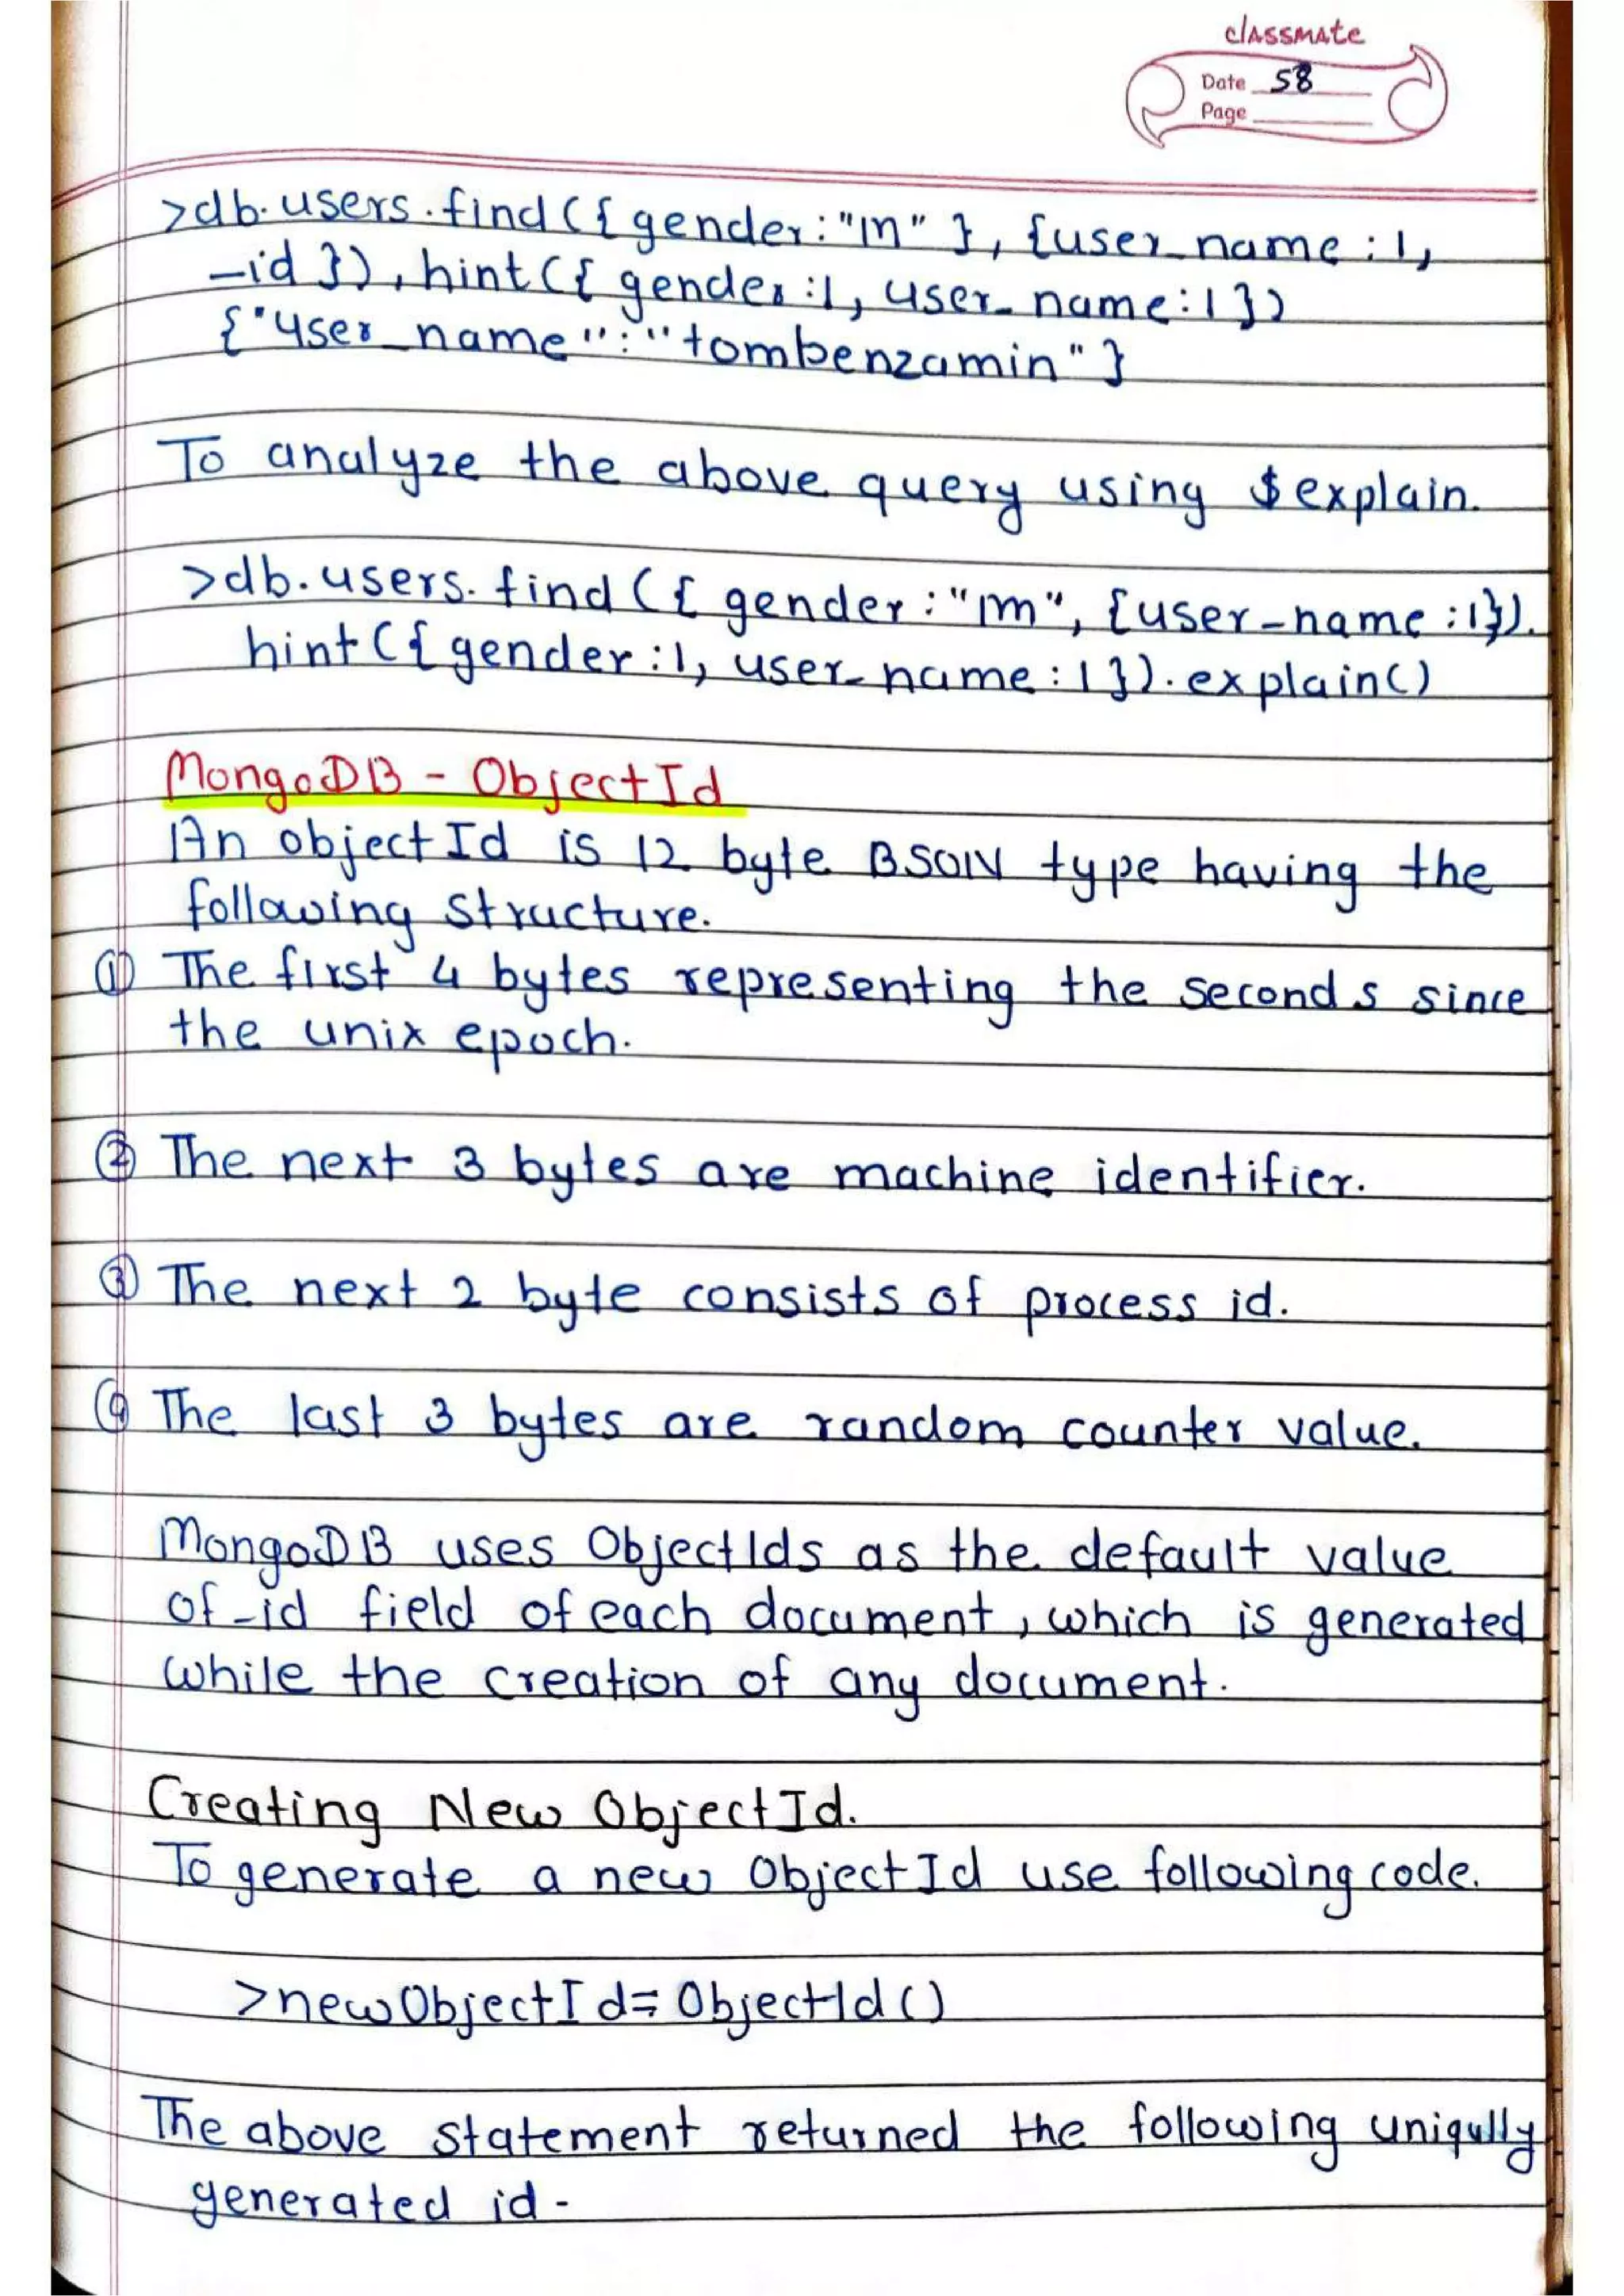 classmate
Date 58
Page
>db.users.find({gender:"m"}, {user_name:1,
_id}), hint({gender:1, user_name:1})
{"user_name":"tombenzamin"}
To analyze the above query using $explain.
>db.users.find({gender:"m", {user-name:1}).
hint({gender:1, user_name:1}).explain()
MongoDB - ObjectId
An objectId is 12 byte BSON type having the
following structure.
① The first 4 bytes representing the seconds since
the unix epoch.
② The next 3 bytes are machine identifier.
③ The next 2 byte consists of process id.
④ The last 3 bytes are random counter value.
MongoDB uses ObjectIds as the default value
of -id field of each document, which is generated
while the creation of any document.
Creating New ObjectId.
To generate a new ObjectId use following code.
>newObjectId = ObjectId()
The above statement returned the following uniqully
generated id -